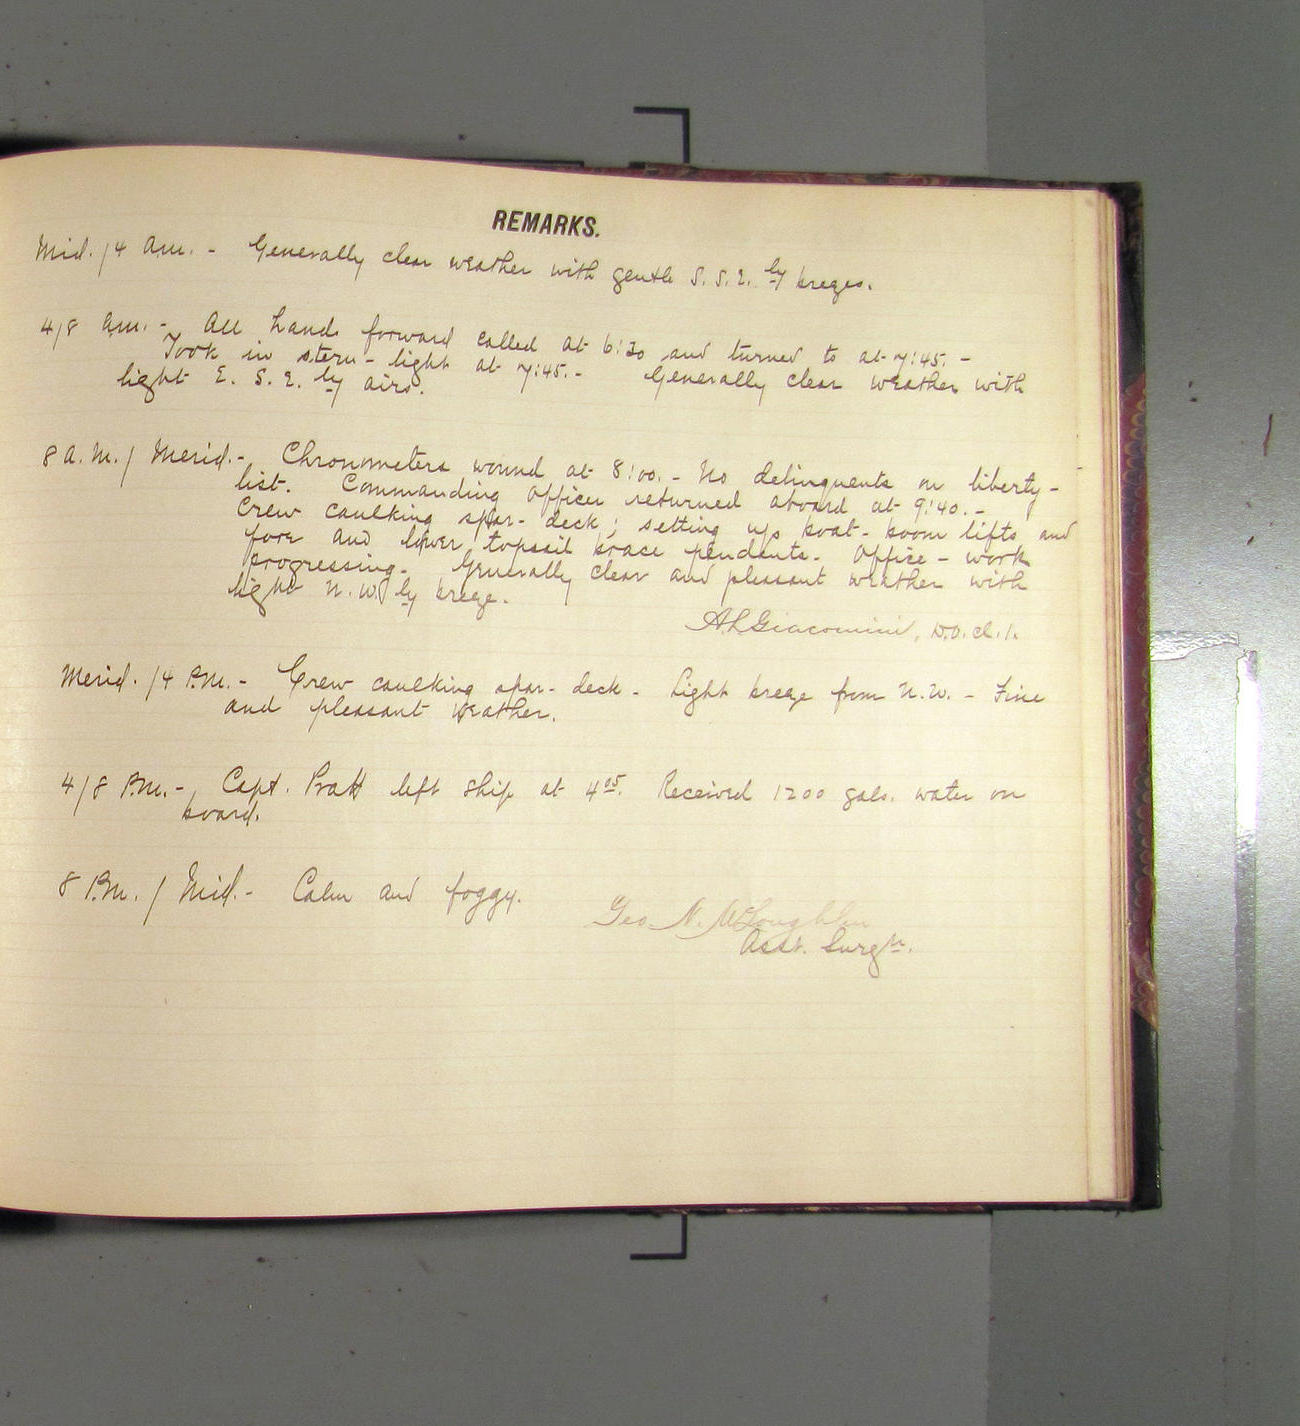 REMARKS.
Mid. / 4 am. - Generally clear weather with gentle S. S. E. ly breezes.
4/8 am. - All hands forward called at 6:30 and turned to at 7:45. -
Took in stern - light at 7:45. - Generally clear weather with
light E. S. E. ly airs.
8 A. M. / Merid. - Chronometers wound at 8:00. - No delinquents on liberty -
list. Commanding Officer returned aboard at 9:40. -
Crew caulking spar - deck; setting up boat - boom lifts and
fore and lower topsail brace pendants. Office - work
progressing. Generally clear and pleasant weather with
light N. W. ly breeze.
A L Giacomini,
Merid. / 4 P.M. - Crew caulking spar - deck - Light breeze from N. W. - Fine
and pleasant weather.
4/8 P.m. - Capt. Pratt left ship at 4 05. Received 1200 gals. water on
board.
8 P.M. / Mid. - Calm and foggy.
Geo. N. McLoughlin
Asst. Surgn.